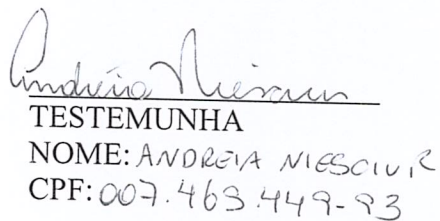 Andréia Niesciur
TESTEMUNHA
NOME: ANDREIA NIESCIUR
CPF: 007.469.449-93